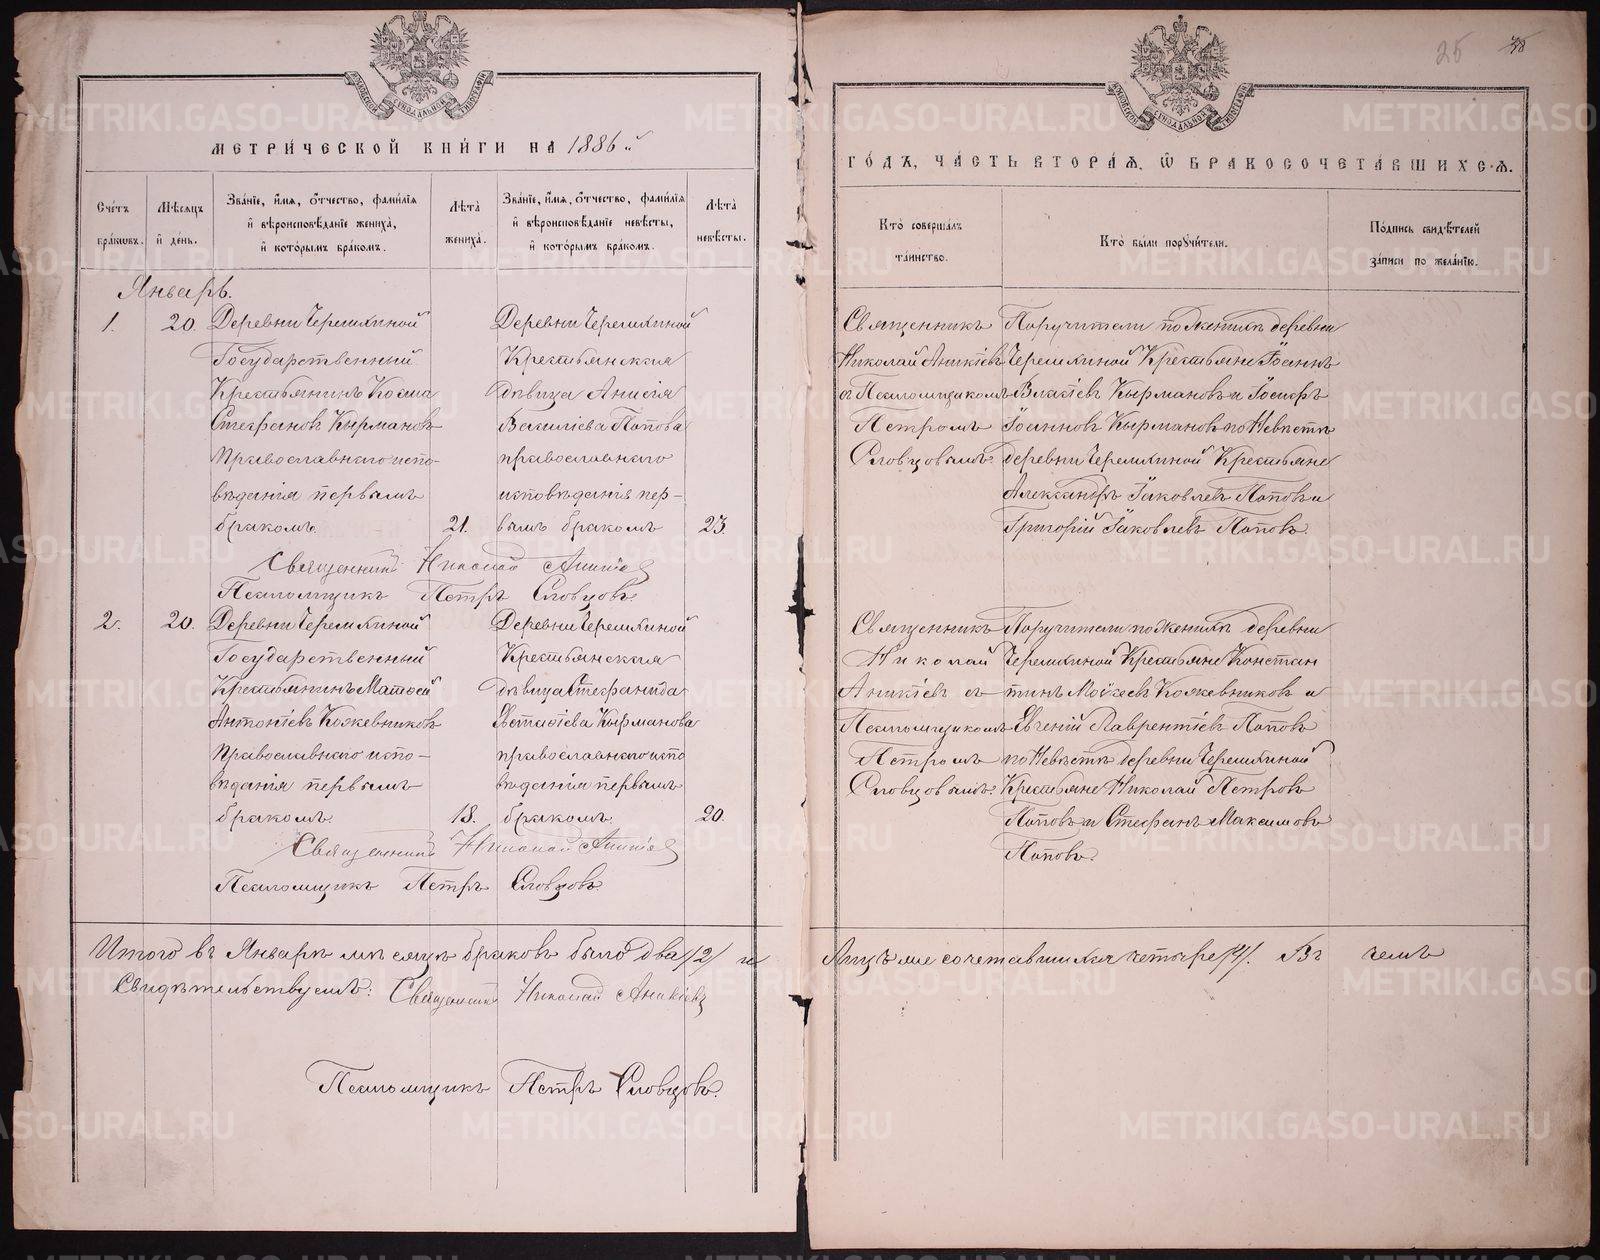 25
МЕТРИ́ЧЕСКОЙ КНИ́ГИ НА 1886 й
ГО́ДЪ, ЧА́СТЬ ВТОРА́Я, Ѡ БРАКОСОЧЕТА́ВШИХСЯ.
Сче́тъ бра́ковъ.
Мѣ́сяцъ и де́нь.
Зва́нїе, и́мя, о́тчество, фами́лїя и вѣроисповѣ́данїе жениха̀, и кото́рымъ бра́комъ.
Лѣта̀ жениха̀.
Зва́нїе, и́мя, о́тчество, фами́лїя и вѣроисповѣ́данїе невѣ́сты, и кото́рымъ бра́комъ.
Лѣта̀ невѣ́сты.
Кто̀ соверша́лъ та́инство.
Кто̀ бы́ли поручи́тели.
По́дпись свидѣ́телей за́писи по жела́нїю.
Январь.
1.
20.
Деревни Черемхиной
Государственный
Крестьянинъ Косма
Стефановъ Кырмановъ
Православнаго испо-
вѣданія первымъ
бракомъ.
21.
Деревни Черемхиной
Крестьянская
дѣвица Анисія
Василіева Попова
православнаго
исповѣданія пер-
вымъ бракомъ
23.
Священникъ
Николай Аникіевъ
съ Псаломщикомъ
Петромъ
Словцовымъ.
Поручители по Женихѣ деревни
Черемхиной Крестьяне Іоаннъ
Власіевъ Кырмановъ и Іосифъ
Іоанновъ Кырмановъ по Невѣстѣ
деревни Черемхиной Крестьяне
Александръ Іаковлевъ Поповъ и
Григорій Іаковлевъ Поповъ.
Священникъ Николай Аникіевъ
Псаломщикъ Петръ Словцовъ.
2.
20.
Деревни Черемхиной
Государственный
Крестьянинъ Матѳей
Антоніевъ Кожевниковъ
Православнаго испо-
вѣданія первымъ
бракомъ.
18.
Деревни Черемхиной
Крестьянская
дѣвица Стефанида
Евстафіева Кырманова
православнаго испо
вѣданія первымъ
бракомъ.
20.
Священникъ
Николай
Аникіевъ съ
Псаломщикомъ
Петромъ
Словцовымъ.
Поручители по Женихѣ деревни
Черемхиной Крестьяне Констан
тинъ Моѵсеевъ Кожевниковъ и
Евгеній Лаврентіевъ Поповъ
по Невѣстѣ деревни Черемхиной
Крестьяне Николай Петровъ
Поповъ и Стефанъ Максимовъ
Поповъ.
Священникъ Николай Аникіевъ
Псаломщикъ Петръ Словцовъ
Итого въ Январѣ мѣсяцѣ браковъ было два /2/ и
Лицъ же сочетавшихся четыре /4/. Въ чемъ
Свидѣтельствуемъ: Священникъ Николай Аникіевъ
Псаломщикъ Петръ Словцовъ.
METRIKI.GASO-URAL.RU